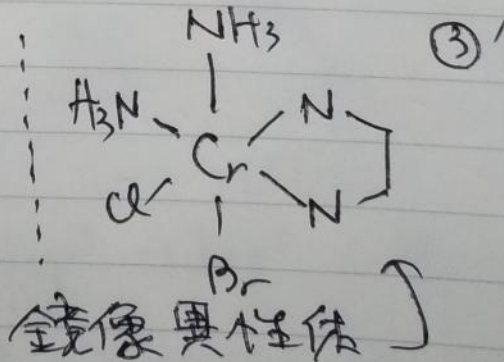 NH3 ③'
H3N N
Cr
Cl N
Br
鏡像異性体